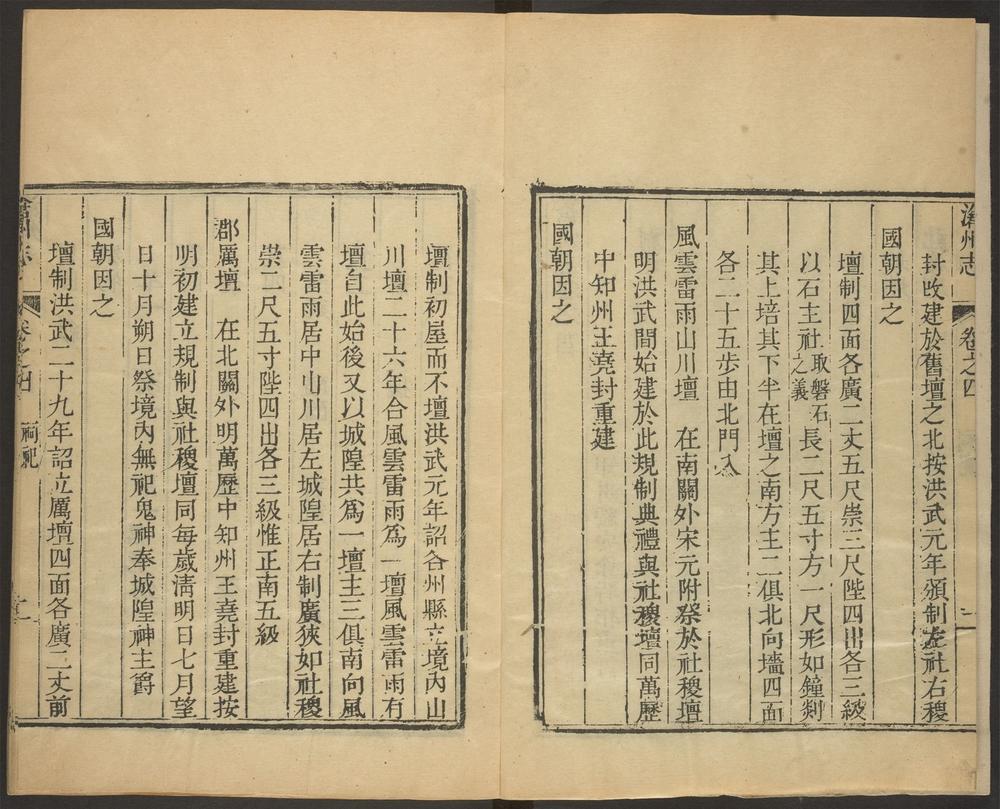 滄州志
卷之四
二
封改建於舊壇之北按洪武元年頒制左社右稷
國朝因之
壇制四面各廣二丈五尺崇三尺陛四出各三級
以石主社取磐石之義長二尺五寸方一尺形如鐘剡
其上培其下半在壇之南方主二俱北向墻四面
各二十五步由北門入
風雲雷雨山川壇 在南關外宋元附祭於社稷壇
明洪武間始建於此規制典禮與社稷壇同萬歷
中知州王堯封重建
國朝因之
壇制初屋而不壇洪武元年詔各州縣立境內山
川壇二十六年合風雲雷雨為一壇風雲雷雨有
壇自此始後又以城隍共為一壇主三俱南向風
雲雷雨居中山川居左城隍居右制廣狹如社稷
崇二尺五寸陛四出各三級惟正南五級
郡厲壇 在北關外明萬歷中知州王堯封重建按
明初建立規制與社稷壇同每歲清明日七月望
日十月朔日祭境內無祀鬼神奉城隍神主爵
國朝因之
壇制洪武二十九年詔立厲壇四面各廣二丈前
卷之四 祠祀
二